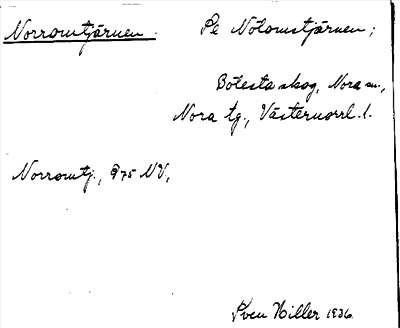 Norromtjärnen. Se Nolomstjärnen;
Bölesta skog, Nora sn.,
Nora tg., Västernorrl. l.
Norromtj., 975 NV,
Sven Hiller 1936